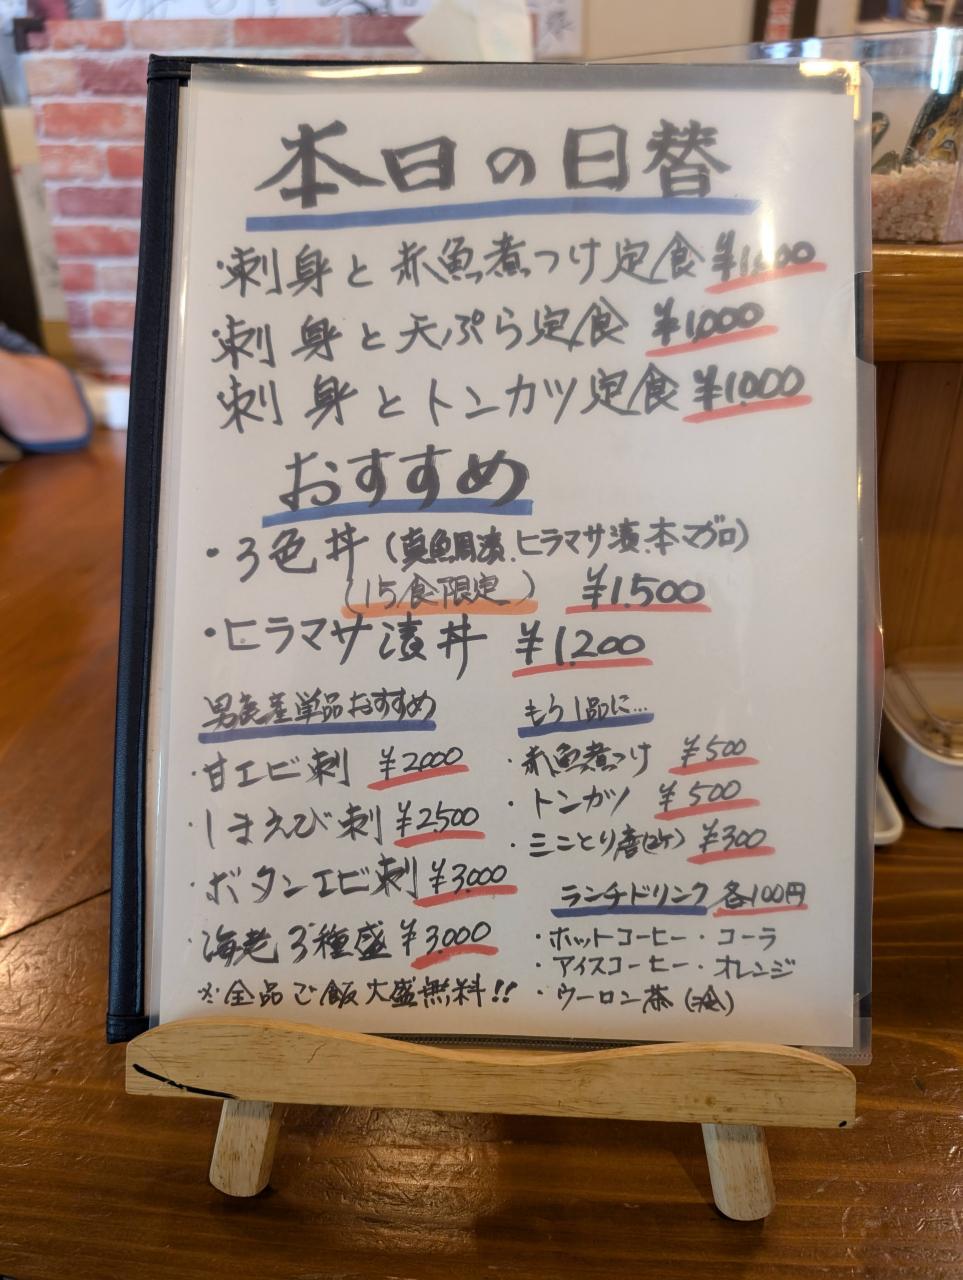 本日の日替
・刺身と赤魚煮つけ定食 ¥1,000
刺身と天ぷら定食 ¥1,000
刺身とトンカツ定食 ¥1,000
おすすめ
・3色丼(真鯛漬、ヒラマサ漬、本マグロ)
(15食限定) ¥1,500
・ヒラマサ漬丼 ¥1,200
男鹿産単品おすすめ
・甘エビ刺 ¥2,000
・しまえび刺 ¥2,500
・ボタンエビ刺 ¥3,000
・海老3種盛 ¥3,000
※全品ご飯大盛無料!!
もう1品に…
・赤魚煮つけ ¥500
・トンカツ ¥500
・ミニとり唐(2ケ) ¥300
ランチドリンク 各100円
・ホットコーヒー・コーラ
・アイスコーヒー・オレンジ
・ウーロン茶(冷)